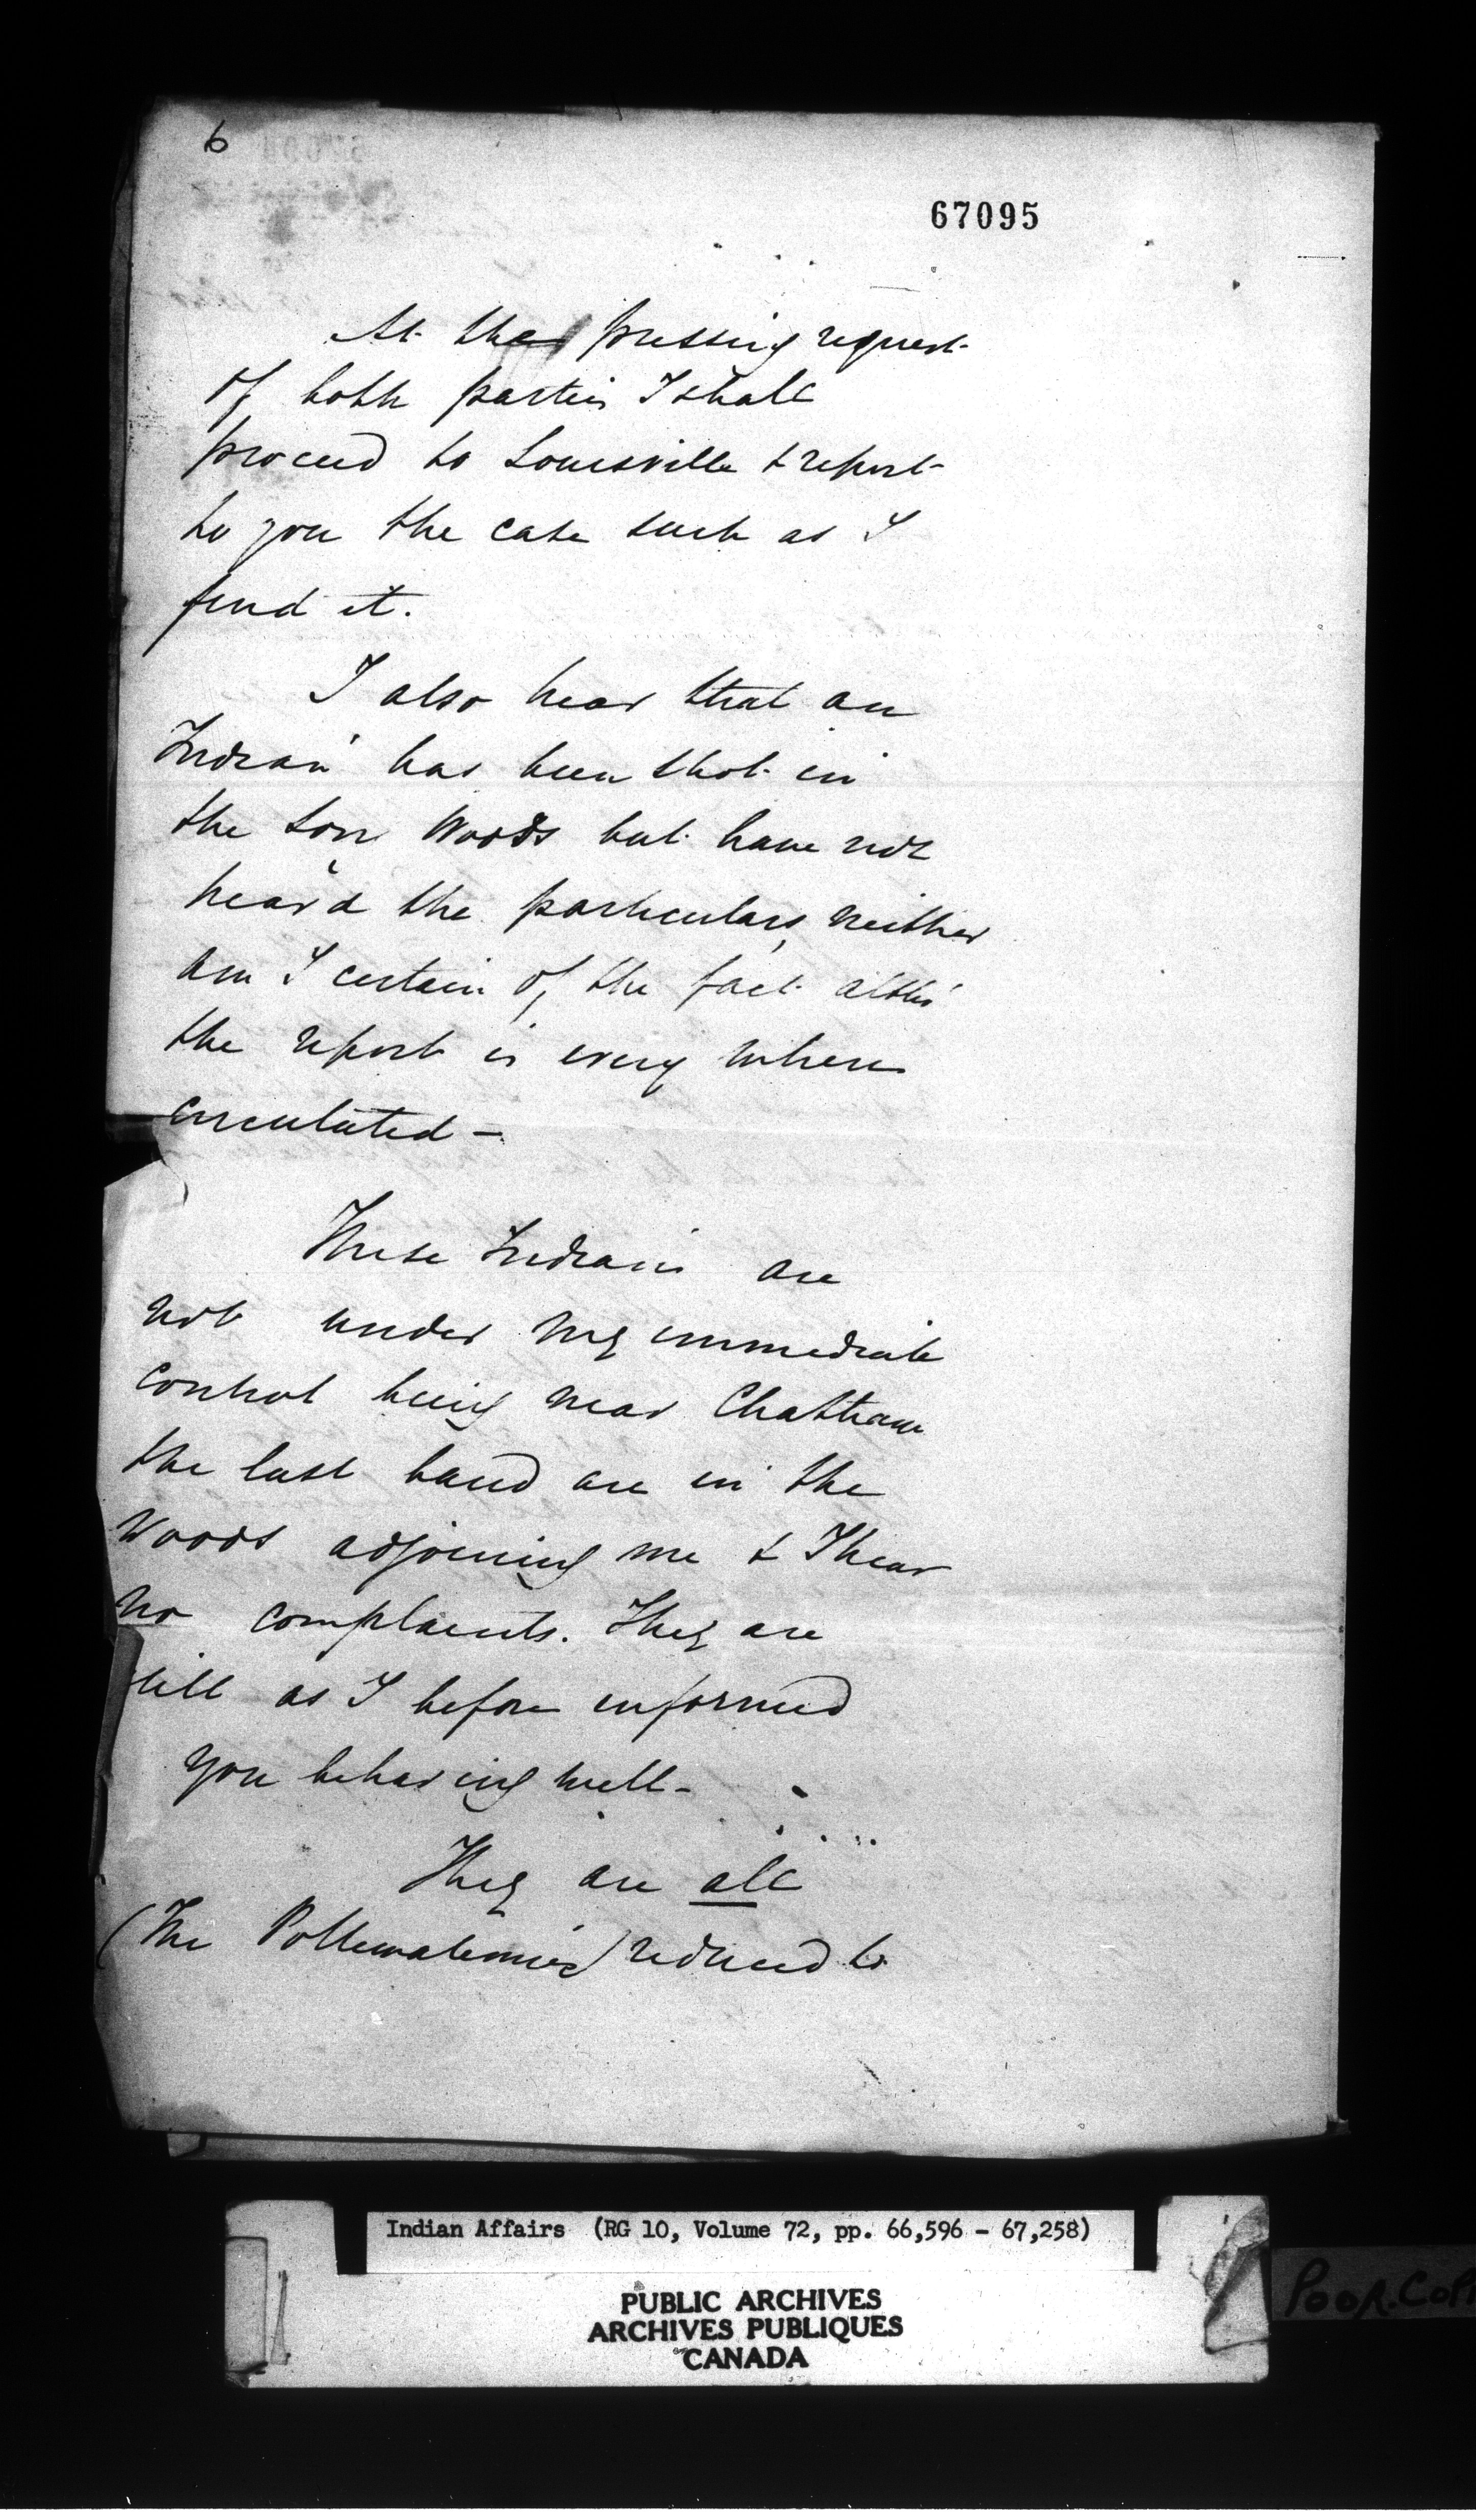 6
67095
At the pressing request
of both parties I shall
proceed to Louisville & report
to you the case such as I
find it.
I also hear that an
Indian has been shot in
the Woods but have not
heard the particulars, neither
am I certain of the fact altho'
the report is every where
circulated –
These Indians are
not under my immediate
control being near Chatham
the last band are in the
Woods adjoining me & I hear
no complaints. They are
still as I before informed
you behaving well –
They are all
(The Pottewatemies) reduced to
Indian Affairs (RG 10, Volume 72, pp. 66,596 - 67,258)
PUBLIC ARCHIVES
ARCHIVES PUBLIQUES
CANADA
POOR.COP